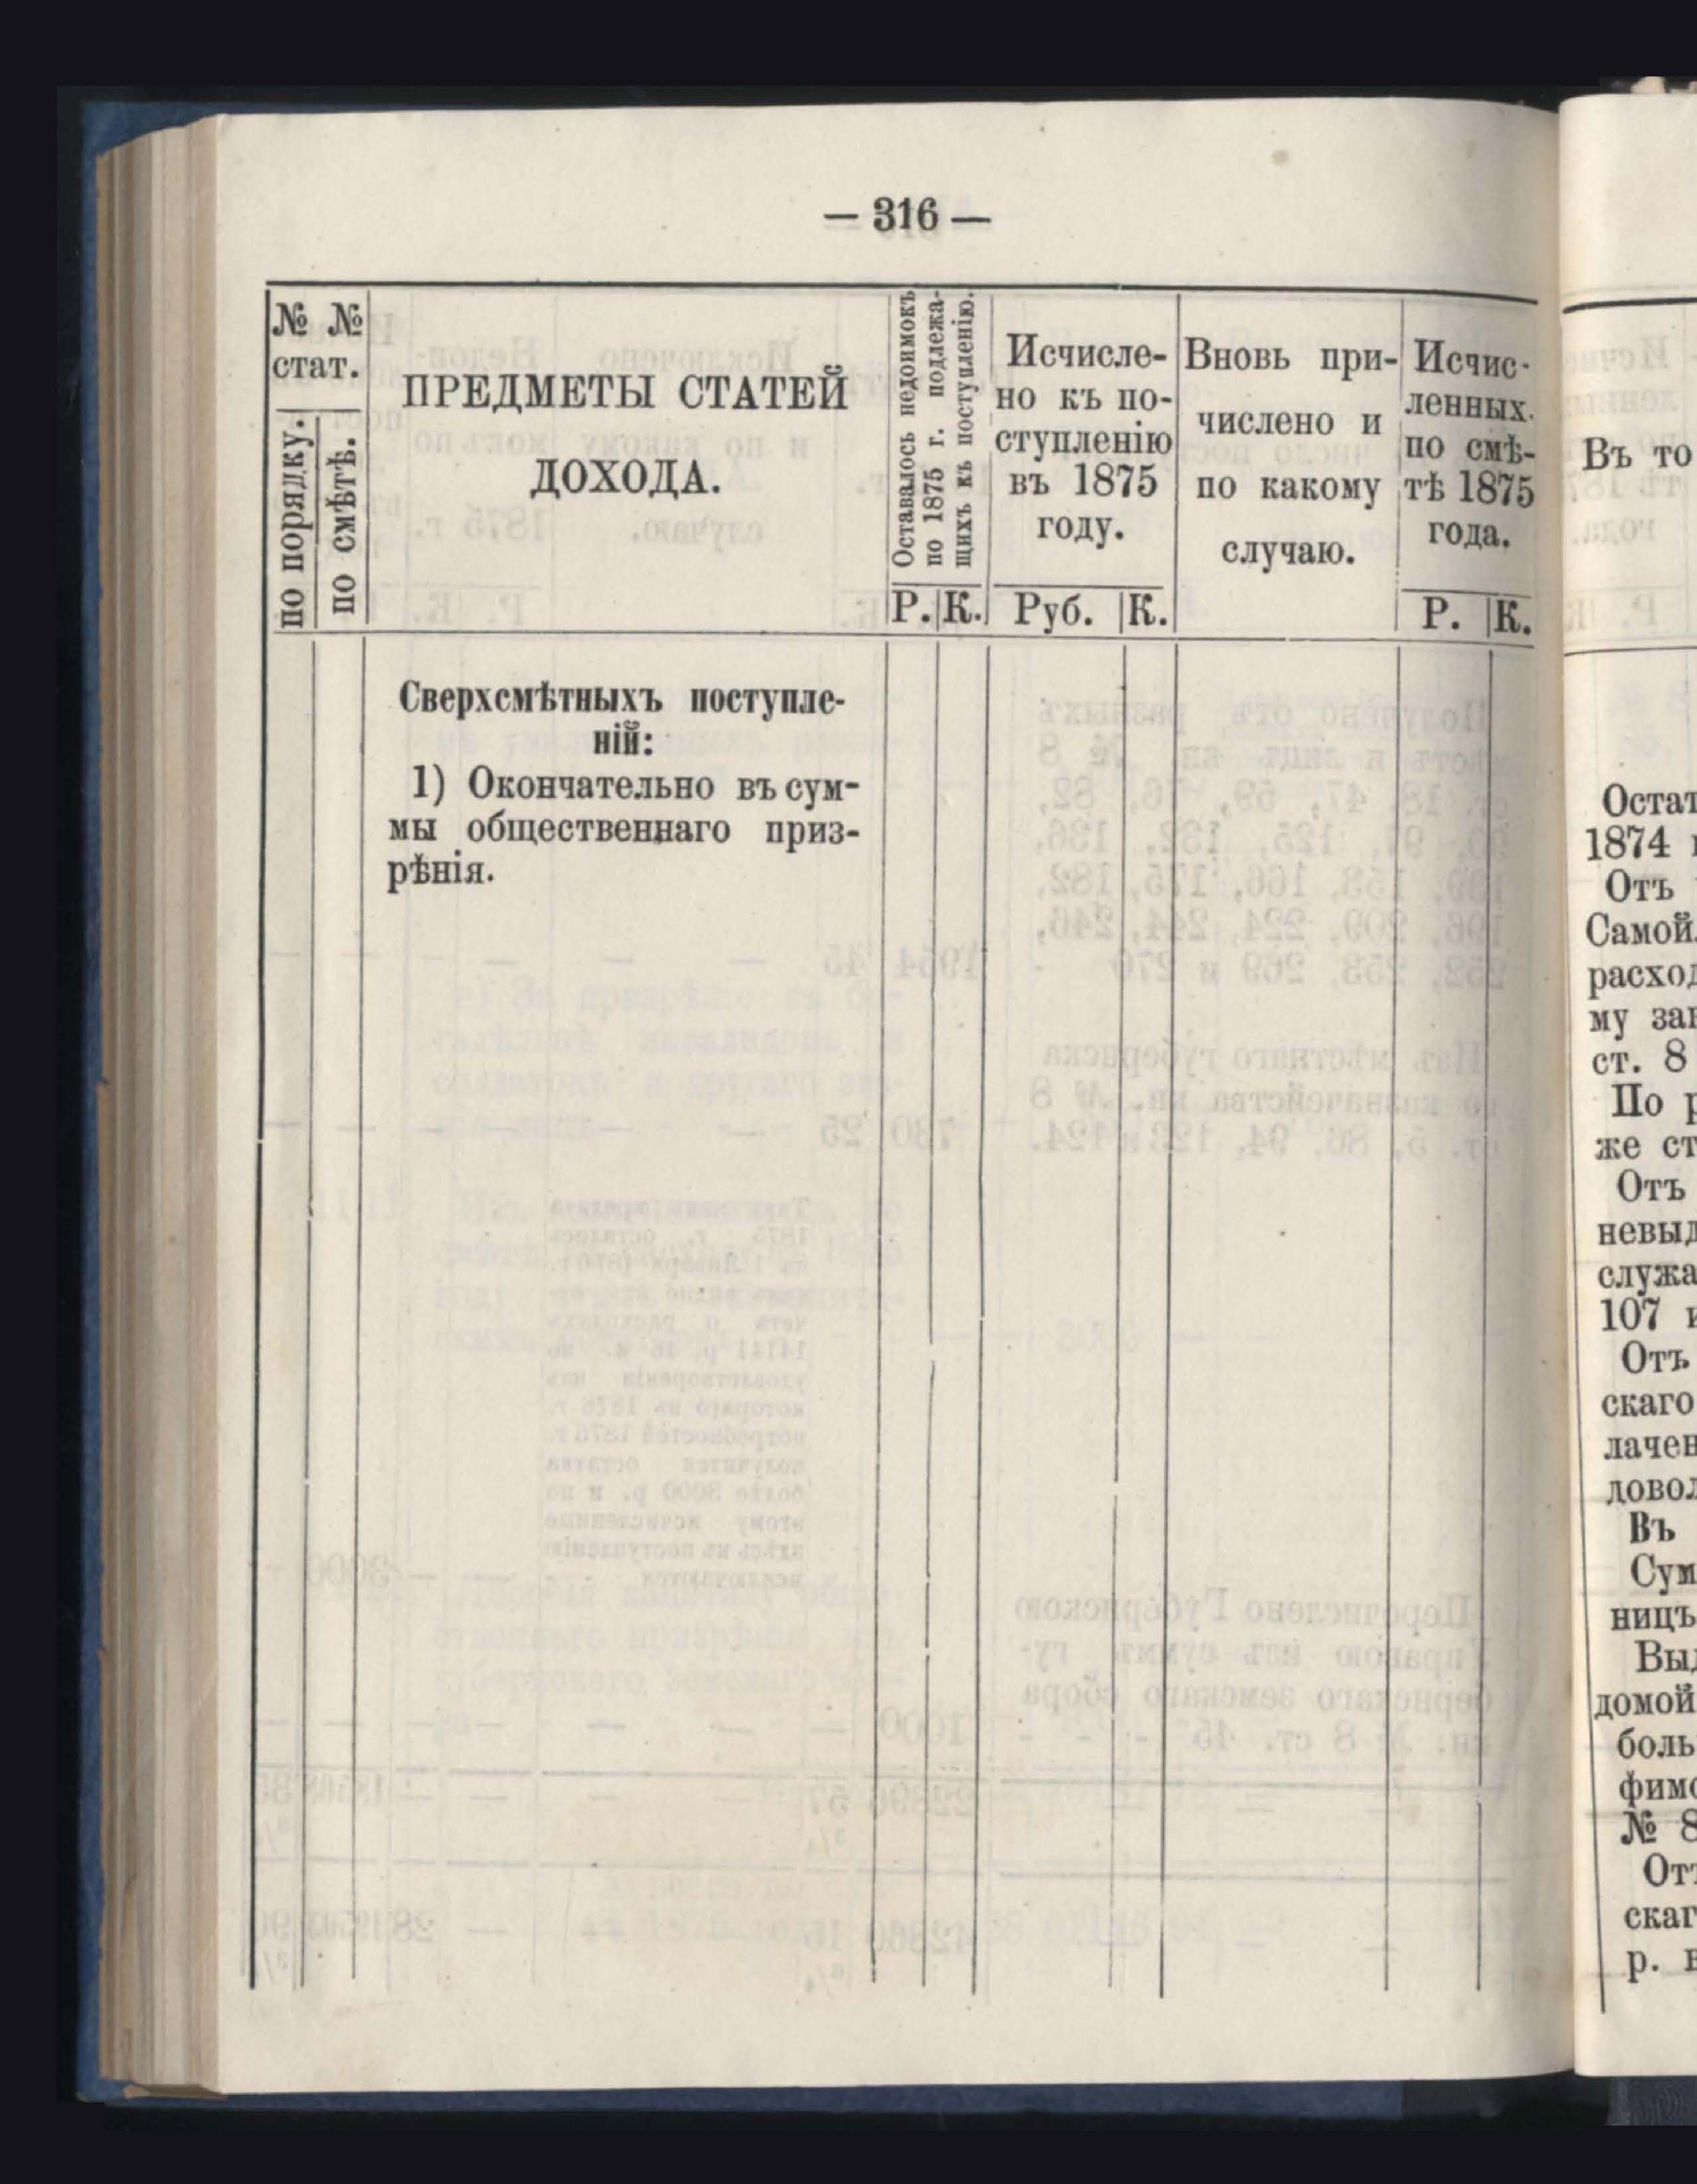 — 316 —
№ №
стат.
по порядку.
по смѣтѣ.
ПРЕДМЕТЫ СТАТЕЙ
ДОХОДА.
Оставалось недоимокъ
по 1875 г. подлежа-
щихъ къ поступленію.
Р. К.
Исчисле-
но къ по-
ступленію
въ 1875
году.
Руб. К.
Вновь при-
числено и
по какому
случаю.
Исчис-
ленныхъ
по смѣ-
тѣ 1875
года.
Р. К.
Сверхсмѣтныхъ поступле-
ній:
1) Окончательно въ сум-
мы общественнаго приз-
рѣнія.
Въ то
1874
Отъ
Самой
расход
ст. 8
По
же ст
Отъ
невыд
служа
107
Отъ
скаго
лачен
Въ
Сум
ницъ
домой
боль
№ 8
скаг
р.